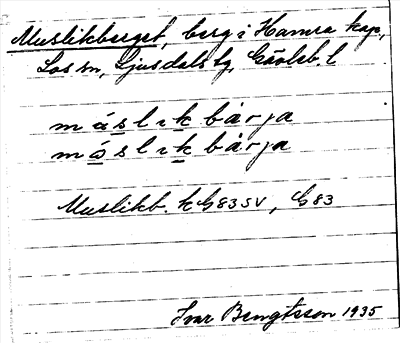 Muslikberget, berg i Hamra kap,
Los sn, Ljusdals tg, Gävleb. l
m u s l i k b ä r j a
m ó s l i k b ä r j a
Muslikb. kG83SV, G83
Ivar Bengtsson 1935